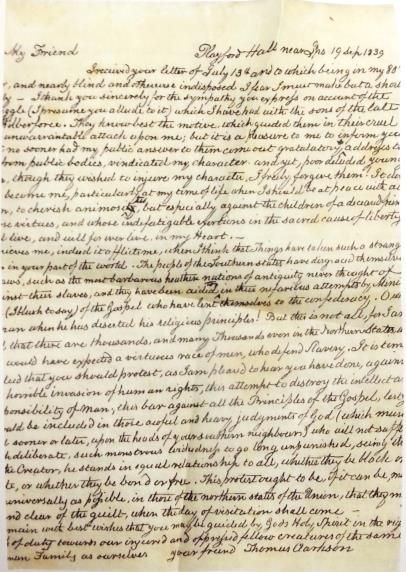 My Friend Playford Hall near Ips 19 Sep 1839
I received your letter of July 13th and to which being in my 80th
r, and nearly blind and otherwise indisposed I fear I must make but a short
ly — I thank you sincerely for the sympathy you express on account of the
ggle (I presume you allude to it) which I have had with the sons of the late
ilberforce. They know best the motive, which guided them in their cruel
unwarrantable attack upon me; but it is a pleasure to me to inform you
no sooner had my public answer to them come out gratulatory addresses to
from public bodies, vindicated my character. and yet, poor deluded young
, though they wished to injure my character, I freely forgive them. It does
become me, particularly at my time of life when I should be at peace with all
n, to cherish animosity, but especially against the children of a deceased friend
se virtues, and whose indefatigable exertions in the sacred cause of liberty
d live, and will for ever live, in my Heart. —
ieves me, indeed it aflicts me, when I think that Things have taken such a strange
in your part of the world. The people of the Southern states have disgraced themselves
aws, such as the most barbarous heathen nations of antiquity never thought of
inst their slaves, and they have been aided in their nefarious attempts by
(I blush to say) of the Gospel who have lent themselves to the confederacy.
man when he has deserted his religious principles! But this is not all, for I am
, that there are thousands, and many Thousands even in the Northern States,
would have expected a virtuous race of men, who defend Slavery. It is time
deed that you should protest, as I am pleased to hear you have done, against
horrible invasion of human rights, this attempt to destroy the intellect and
ponsibility of Man, this bar against all the Principles of the Gospel, lest
uld be included in those awful and heavy judgments of God (which must
t sooner or later, upon the heads of your southern neighbours) who will not suffer
h deliberate, such monstrous wickedness to go long unpunished, seeing that
the Creator, he stands in equal relationship to all, whether they be black or
te, or whether they be bond or free. This protest ought to be, if it can be, made
universally as possible, in those of the northern states of the Union, that they may
nd clear of the guilt, when the day of visitation shall come —
main with best wishes that you may be guided by Gods Holy Spirit in the right
of duty towards our injured and oppressed fellow creatures of the same
man Family as ourselves your friend Thomas Clarkson